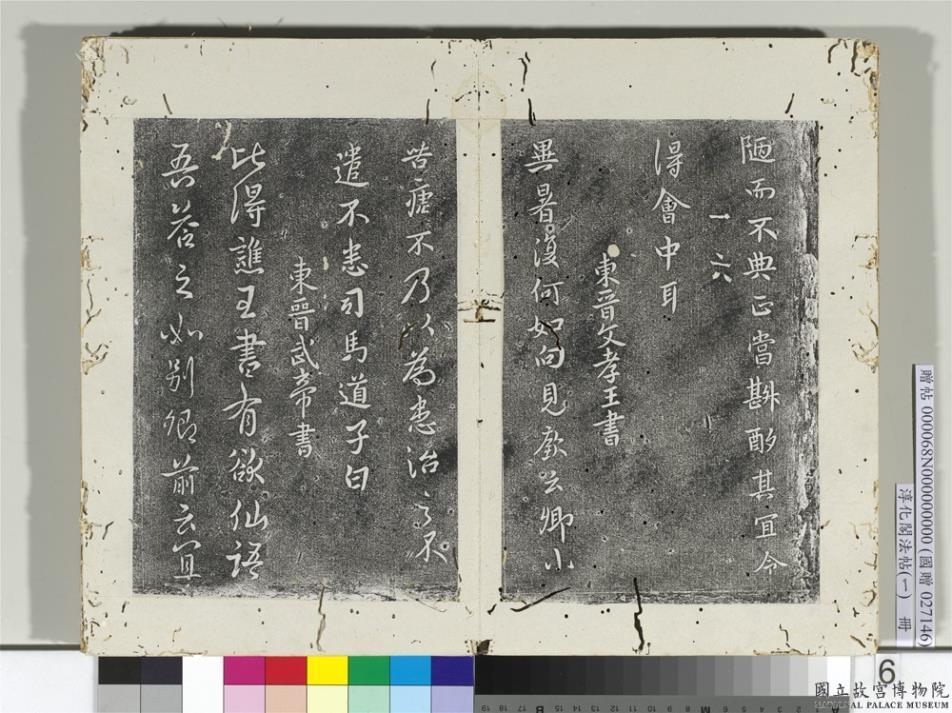 陋而不典正當斟酌其宜令
一六
得會中耳
東晉文孝王書
異暑復何如向見庾公卿小
苦瘧不乃以為患治之不
遣不悉司馬道子白
東晉武帝書
比得譙王書有欲仙語
吾答之如別卿前云宜
贈帖 000068N000000000 (國贈 027146)
淳化閣法帖(一) 冊
6
國立故宮博物院
NATIONAL PALACE MUSEUM